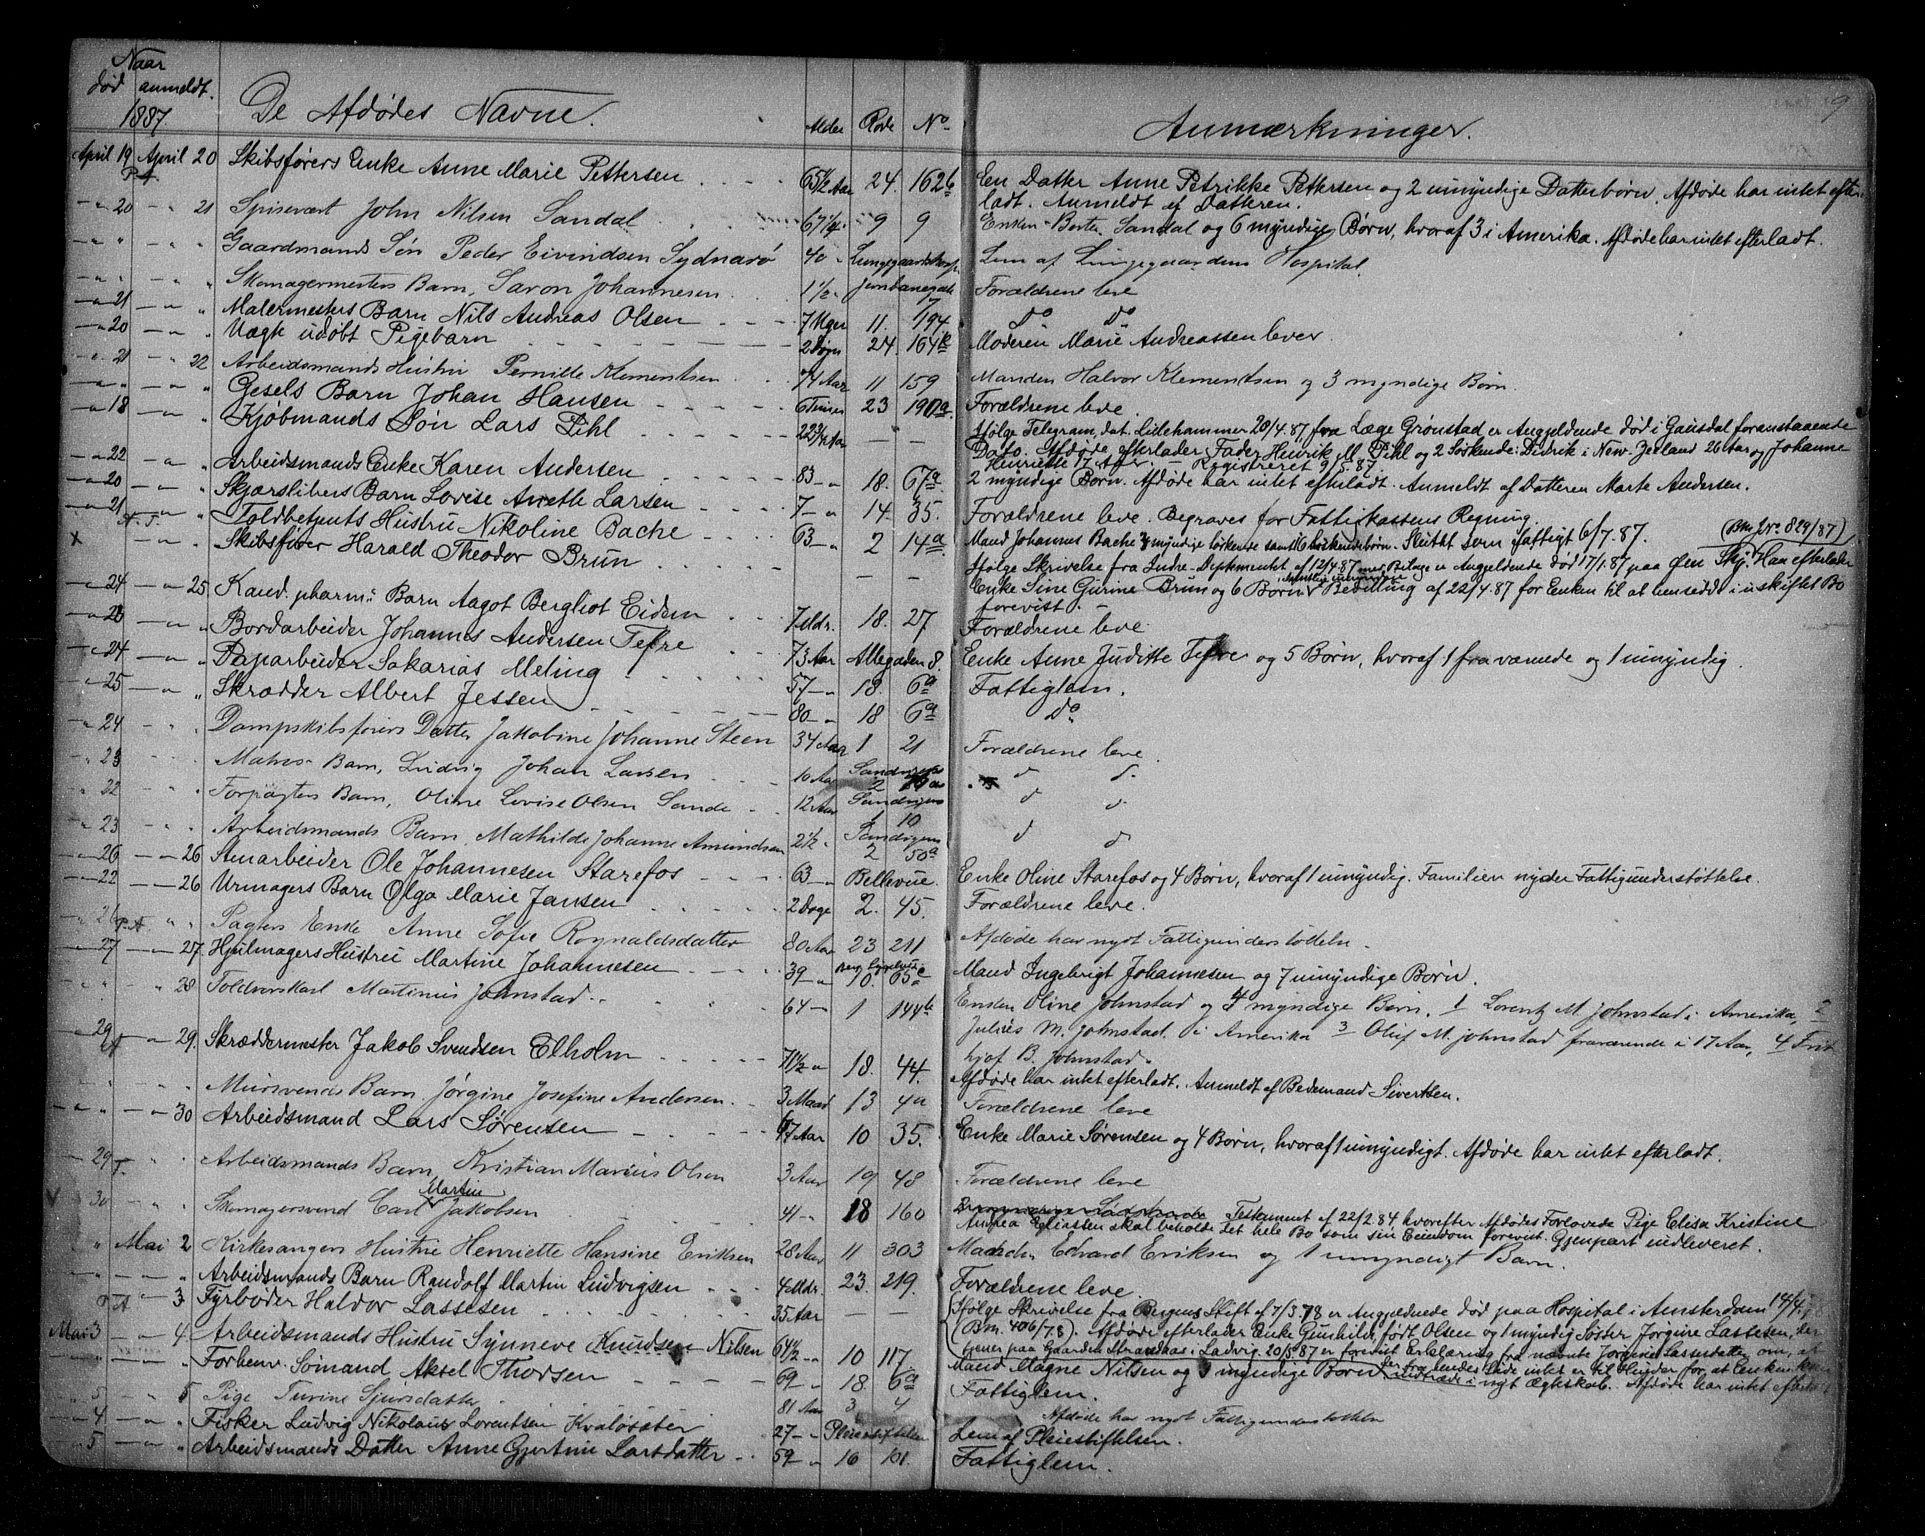 Naar
død anmeldt.
1887.
De Afdødes Navne.
Alder Rode No
Anmærkninger.
9
April 19 April 20 Skibsførers Enke Anne Marie Pettersen 65½ Aar 24. 162b En Datter Anne Petrikke Pettersen og 2 umyndige Datterbørn. Afdøde har intet efter-
ladt. Anmeldt af Datteren.
20 21 Spisevært John Nilsen Sandal 67¼ 9 9 Enken Berte Sandal og 6 myndige Børn, hvoraf 3 i Amerika. Afdøde har intet efterladt.
Gaardmands Søn Peder Eivindsen Sydnæsø 40 Lungegaardshosp. Lem af Lungegaardens Hospital.
Skomagermesters Barn, Saron Johannesen 1½ Jernbanegade 7 Forældrene leve
21 Malermesters Barn Nils Andreas Olsen 7 Uger 11. 194. Do Do
20 Uægte udøbt Pigebarn 2 Døgn 24. 164k Moderen Marie Andreassen lever.
21 22 Arbeidsmands Hustru Pernille Klementsen 74 Aar 11 159 Manden Halvor Klementsen og 3 myndige Børn.
Gesels Barn Johan Hansen 6 Timer 23 190a Forældrene leve.
18 Kjøbmands Søn Lars Pihl 22¾ Aar — — Ifølge Telegram, dat. Lillehammer 20/4.87, fra Læge Grønstad er Angjeldende død i Gausdal foranstaaende
Dato. Afdøde efterlader Fader Henrik M. Pihl og 2 Søskende: Didrik i New Zeeland 26 Aar og Johanne
Henriette 17 Aar. — Registreret 9/5.87.
22 Arbeidsmands Enke Karen Andersen 83 18. 67a 2 myndige Børn. Afdøde har intet efterladt. Anmeldt af Datteren Marte Andersen.
20 Skjærslibers Barn Lovise Anette Larsen 7 14. 35. Forældrene leve. Begraves for Fattigkassens Regning.
21 Toldbetjents Hustru Nikoline Bache 63 2 14a Mand Johannes Bache myndige samt Sluttet som fattigt 6/7.87.
x Skibsfører Harald Theodor Brun — — Ifølge Skrivelse fra Indre-Deptmentet af 12/4.87 med Bilage er Angjeldende død 17/1.87 paa Øen Sky. Han efterlader
(Bm. No 829/87)
Enke Sine Gurine Brun og 6 Børn, Bevilling af 22/4.87 for Enken til at hensidde i uskiftet Bo
forevist.
24 25 Kand. pharm: Barn Aagot Bergliot Eidem 7 Mdr. 18. 27 Forældrene leve
23 Bordarbeider Johannes Andersen Tefre 73 Aar Allegaden 8. Enke Anne Juditte Tefre og 5 Børn, hvoraf 1 fraværende og 1 umyndig.
24 Paparbeider Sakarias Meling 57 18. 6a Fattiglem.
25 Skrædder Albert Jessen 80 18 6a Do
24 Dampskibsførers Datter Jakobine Johanne Steen 34 Aar 1 21 Forældrene leve.
23 Matros Barn, Ludvig Johan Larsen 10 Aar Sandvigens 2 d d.
22 Forpagters Barn, Oline Lovise Olsen Sande 12 Aar Sandvigens 1 10 d d
23 Arbeidsmands Barn, Mathilde Johanne Amundsen 2½ Sandvigens 2 50a d d
26 26 Stenarbeider Ole Johannesen Starefos 63 Bellevue. Enke Oline Starefos og 4 Børn, hvoraf 1 umyndig. Familien nyder Fattigunderstøttelse.
22 26 Urmagers Barn Olga Marie Jansen 2 Dage 2. 45. Forældrene leve.
26 Pagters Enke Anne Sofie Rognaldsdatter 80 Aar 23 211 Afdøde har nydt Fattigunderstøttelse.
27 27. Hjulmagers Hustru Martine Johannesen 39 10. 65c Mand Ingebrigt Johannesen og 7 umyndige Børn.
28 Toldvorskarl Martinius Johnstad 64 1 144b Enken Oline Johnstad og 4 myndige Børn, 1 Lorentz M. Johnstad i Amerika, 2
Julius M. Johnstad i Amerika 3 Oluf M. Johnstad fraværende i 17 Aar, 4 Frit
hjof B. Johnstad.
29 29. Skræddermester Jakob Svendsen Elholm 71½ 18. 44. Afdøde har intet efterladt. Anmeldt af Bedemand Sivertsen.
Mursvends Barn Jørgine Josefine Andersen 3 Maad 13 4a Forældrene leve
30 Arbeidsmand Lars Sørensen 47 Aar 10 35. Enke Marie Sørensen og 4 Børn, hvoraf 1 umyndigt. Afdøde har intet efterladt.
29 Arbeidsmands Barn, Kristian Marius Olsen 3 Aar 19 48 Forældrene leve
30 Skomagersvend Carl Martin Jakobsen 41 18 160 Testament af 22/2.84, hvorefter Afdødes Forlovede Pige Elisa Kristine
Andrea Eliasen skal beholde det hele Bo som sin Eiendom forevist. Gjenpart indleveret.
Mai 2 Kirkesangers Hustru Henriette Hansine Eriksen 28 Aar 11 303 Manden Edvard Eriksen og 1 umyndigt Barn.
Arbeidsmands Barn Randolf Martin Ludvigsen 4 Mdr. 23. 219. Forældrene leve.
3 Fyrbøder Haldor Lassesen 35 Aar — — Ifølge Skrivelse fra Bergens Skift af 7/3.78 er Angjeldende død paa Hospital i Amsterdam 14/4.
(Bm. 406/78). Afdøde efterlader Enke Gunhild, født Olsen og 1 myndig Søster Jørgine Lassesen, der
tjener paa Gaarden Strandnæs i Ladvig. 20/5.87 er forevist Erklæring fra nævnte Jørgine Lassesdatter om, at
der fra hendes Side intet er til Hinder for, at Enken
indtræde i nyt Ægteskab.
Mai 3 4 Arbeidsmands Hustru Synneve Knudsen Nilsen 64½ 10 117. Mand Magne Nilsen og 3 myndige Børn. Afdøde har intet efterladt
Forhenv. Sømand Aksel Thorsen 69 18. 6a Fattiglem.
5 5 Pige Turine Sjursdatter 81 Aar 3 4 Afdøde har nydt Fattigunderstøttelse
4 Fisker Ludvig Nikolaus Lorentsen Kvaløsæter 27 Pleiestiftelsen Lem af Pleiestiftelsen.
5 Arbeidsmands Datter Anne Gjertine Larsdatter 59 16 101. Fattiglem.